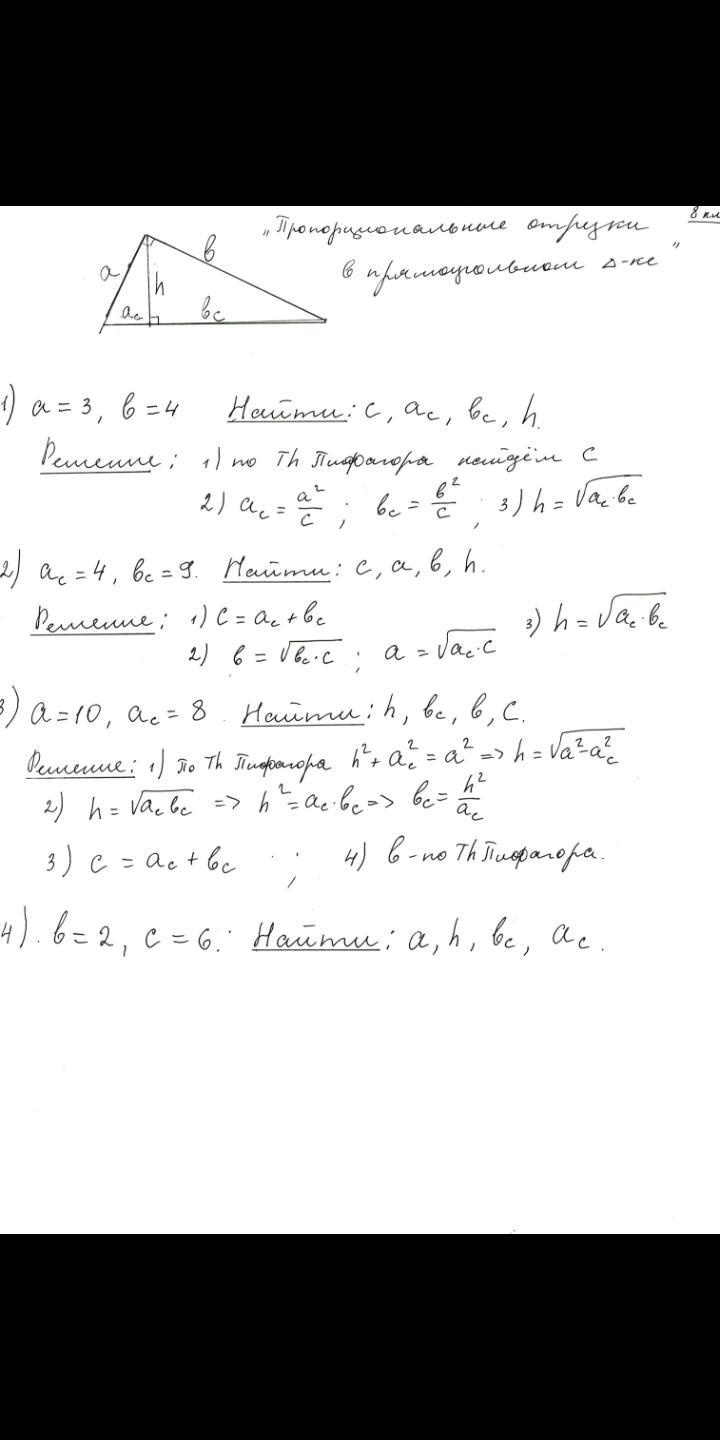 8 кл
„Пропорциональные отрезки
в прямоугольном Δ-ке"
a
в
h
a_c
в_c
1) a = 3, в = 4 Найти: c, a_c, в_c, h.
Решение: 1) по Th Пифагора найдём c
2) a_c = a²/c ; в_c = в²/c ; 3) h = √(a_c·в_c)
2) a_c = 4, в_c = 9. Найти: c, a, в, h.
Решение: 1) c = a_c + в_c 3) h = √(a_c·в_c)
2) в = √(в_c·c) ; a = √(a_c·c)
3) a = 10, a_c = 8. Найти: h, в_c, в, c.
Решение: 1) по Th Пифагора h² + a_c² = a² => h = √(a² - a_c²)
2) h = √(a_c в_c) => h² = a_c·в_c => в_c = h²/a_c
3) c = a_c + в_c ; 4) в - по Th Пифагора.
4). в = 2, c = 6. Найти: a, h, в_c, a_c.